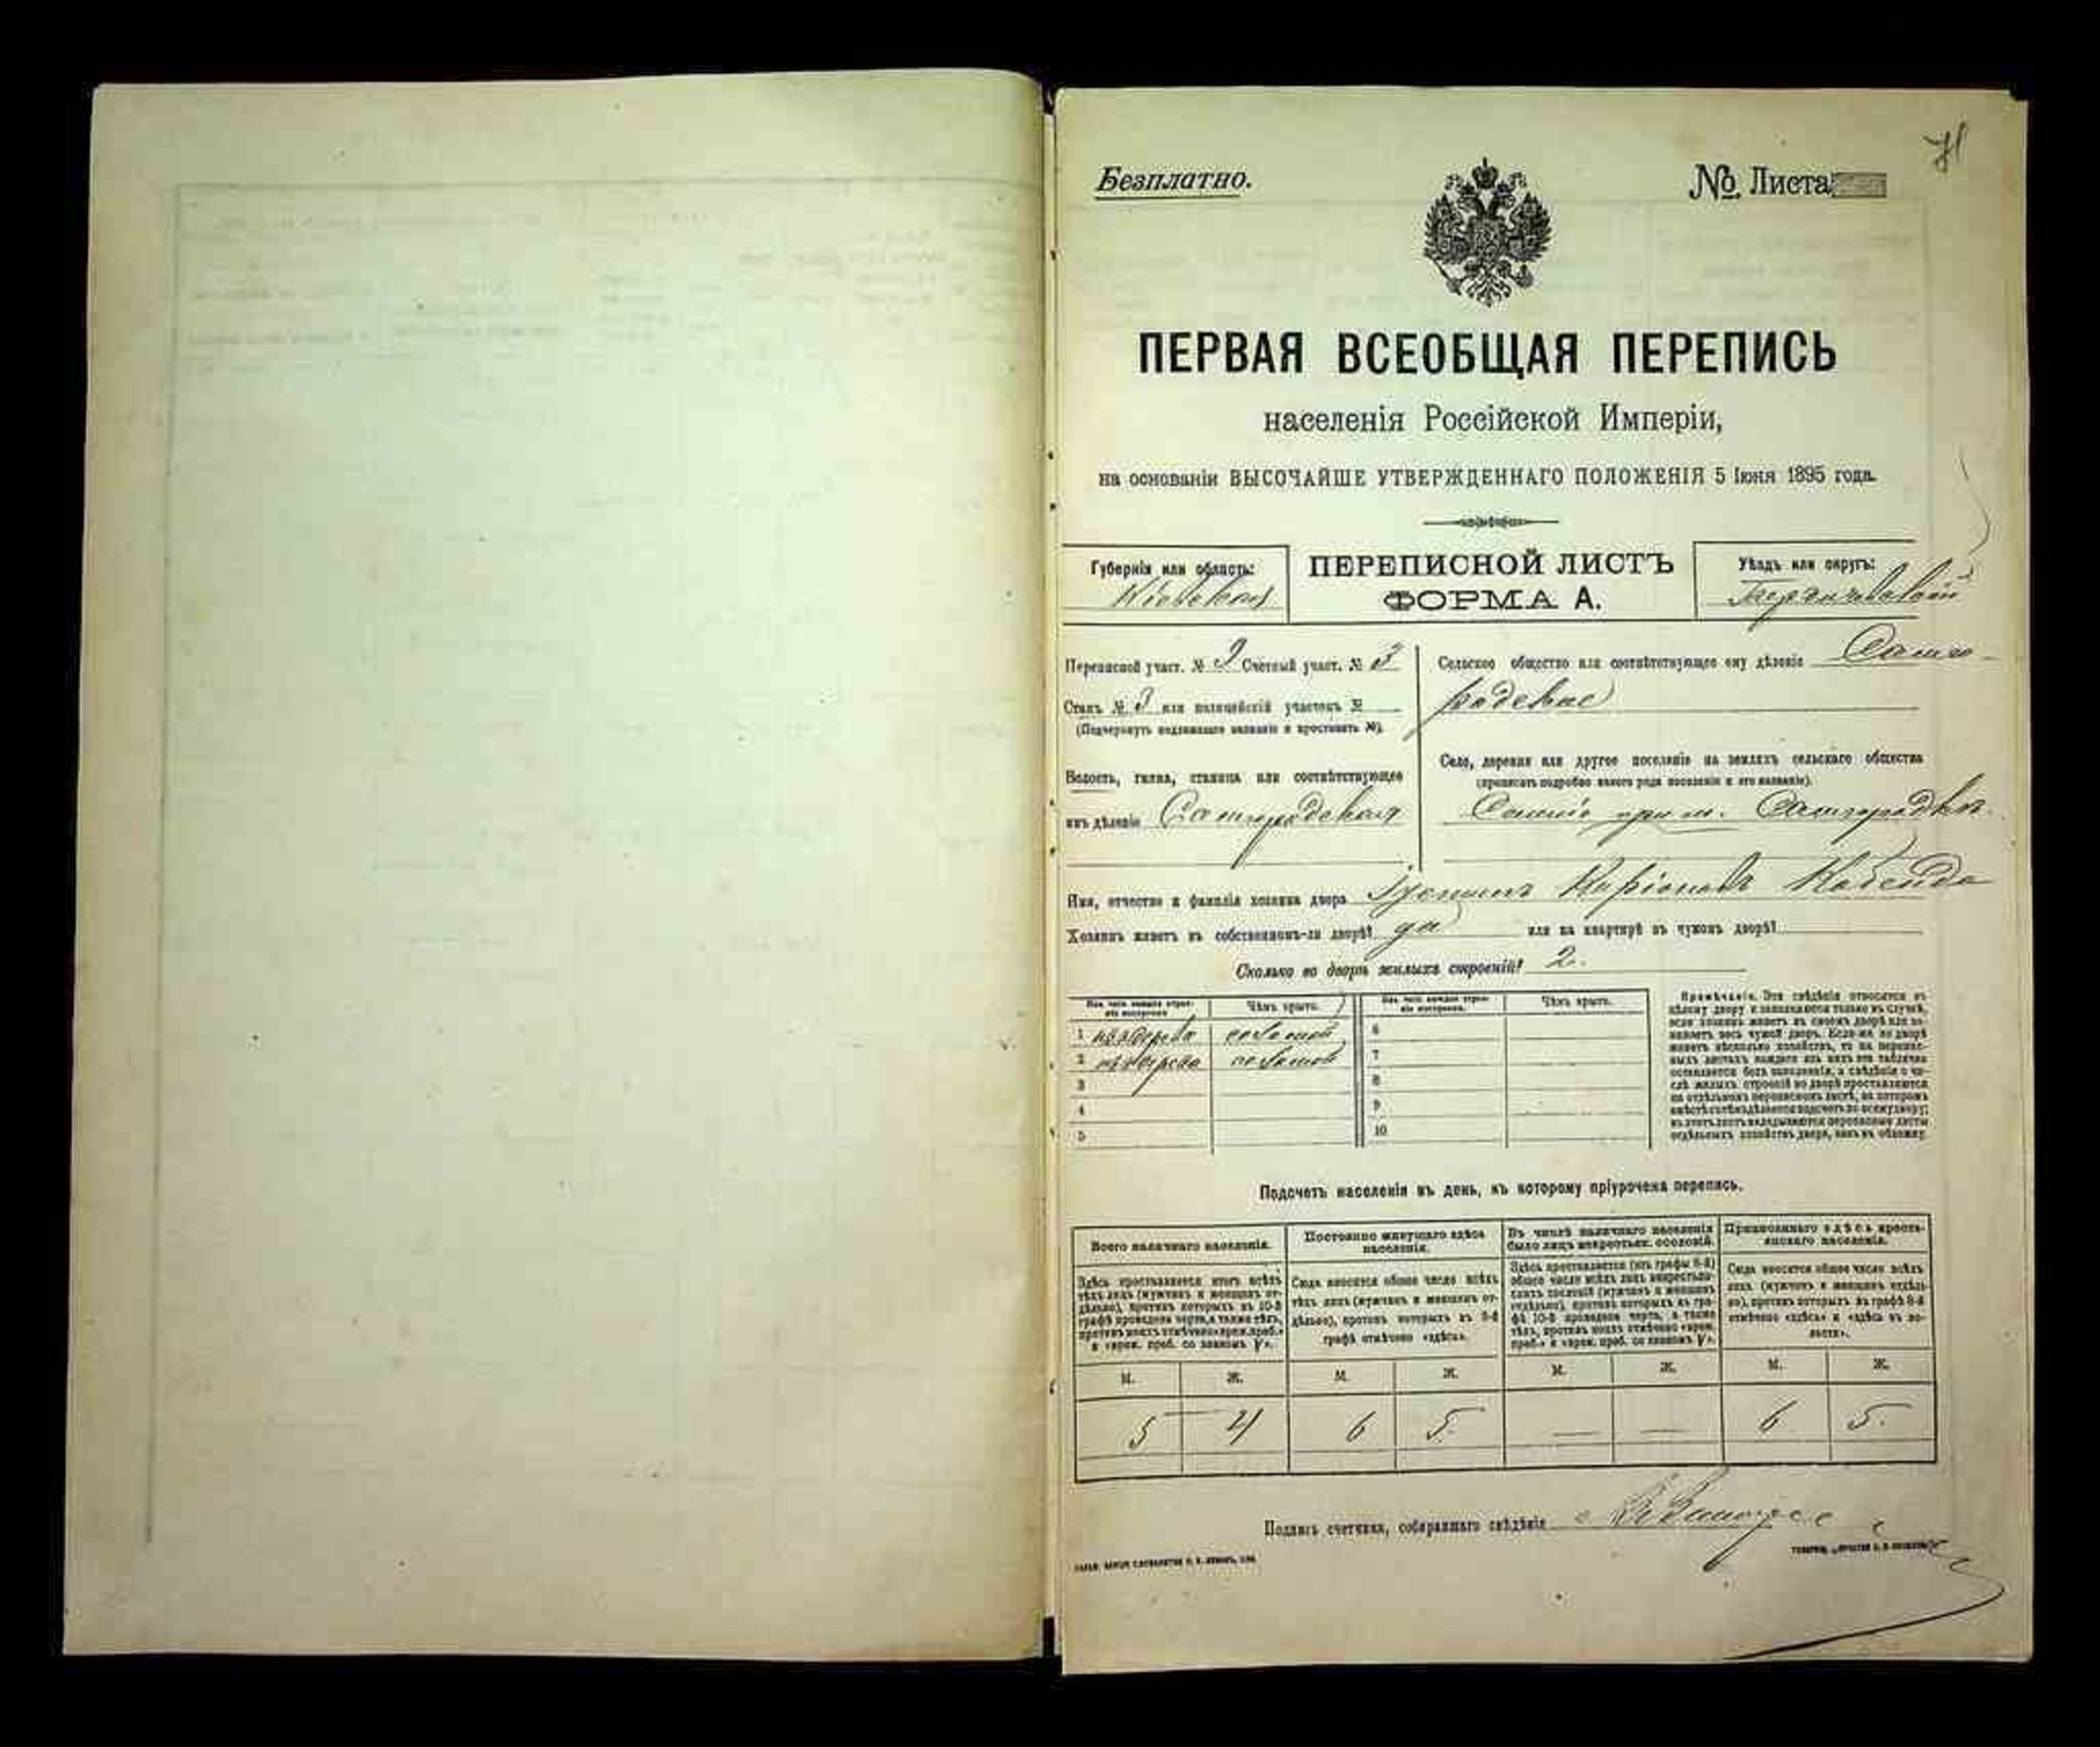 71
Безплатно.
№ Листа
ПЕРВАЯ ВСЕОБЩАЯ ПЕРЕПИСЬ
населенія Россійской Имперіи,
на основаніи ВЫСОЧАЙШЕ УТВЕРЖДЕННАГО ПОЛОЖЕНІЯ 5 Іюня 1895 года.
Губернія или область:
Кіевская
ПЕРЕПИСНОЙ ЛИСТЪ
ФОРМА А.
Уѣздъ или округъ:
Бердичевскій
Переписной участ. № 9 Счетный участ. № 3
Станъ № 3 или полицейскій участокъ №
(Подчеркнуть надлежащее названіе и проставить №).
Волость, гмина, станица или соотвѣтствующее
имъ дѣленіе Самгородская
Сельское общество или соотвѣтствующее ему дѣленіе Самго-
родское
Село, деревня или другое поселеніе на земляхъ сельскаго общества
(прописать подробно какого рода поселеніе и его названіе).
при м. Самгородкѣ
Имя, отчество и фамилія хозяина двора
Хозяинъ живетъ въ собственномъ-ли дворѣ? да или на квартирѣ въ чужомъ дворѣ?
Сколько во дворѣ жилыхъ строеній? 2.
Изъ чего каждое строеніе построено. Чѣмъ крыто. Изъ чего каждое строеніе построено. Чѣмъ крыто.
1 изъ дерева соломой 6
2 изъ дерева соломой 7
3 8
4 9
5 10
Примѣчаніе. Эти свѣдѣнія относятся къ
цѣлому двору и заполняются только въ случаѣ,
если хозяинъ живетъ въ своемъ дворѣ или за-
нимаетъ весь чужой дворъ. Если-же во дворѣ
живетъ нѣсколько хозяйствъ, то на перепис-
ныхъ листахъ каждаго изъ нихъ эта табличка
оставляется безъ заполненія, а свѣдѣнія о чи-
слѣ жилыхъ строеній во дворѣ проставляются
на отдѣльномъ переписномъ листѣ, на которомъ
вмѣстѣ съ тѣмъ дѣлается подсчетъ по всему двору;
въ этотъ листъ вкладываются переписные листы
отдѣльныхъ хозяйствъ двора, какъ въ обложку.
Подсчетъ населенія въ день, къ которому пріурочена перепись.
Всего наличнаго населенія.
Постоянно живущаго здѣсь населенія.
Въ числѣ наличнаго населенія было лицъ некрестьян. сословій.
Приписаннаго здѣсь крестьянскаго населенія.
Здѣсь проставляется итогъ всѣхъ
тѣхъ лицъ (мужчинъ и женщинъ от-
дѣльно), противъ которыхъ въ 10-й
графѣ проведена черта, а также тѣхъ,
противъ коихъ отмѣчено «врем. преб.»
и «врем. преб. со знакомъ V».
Сюда вносится общее число всѣхъ
тѣхъ лицъ (мужчинъ и женщинъ от-
дѣльно), противъ которыхъ въ 9-й
графѣ отмѣчено «здѣсь».
Здѣсь проставляется (изъ графы 6-й)
общее число всѣхъ лицъ некрестьян-
скихъ сословій (мужчинъ и женщинъ
отдѣльно), противъ которыхъ въ гра-
фѣ 10-й проведена черта, а также
тѣхъ, противъ коихъ отмѣчено «врем.
преб.» и «врем. преб. со знакомъ V».
Сюда вносится общее число всѣхъ
лицъ (мужчинъ и женщинъ отдѣль-
но), противъ которыхъ въ графѣ 8-й
отмѣчено «здѣсь» и «здѣсь въ во-
лости».
М. Ж. М. Ж. М. Ж. М. Ж.
5 4 6 5 — — 6 5.
Подпись счетчика, собиравшаго свѣдѣнія